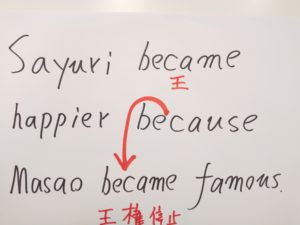 Sayuri became
王
happier because
Masao became famous.
王権停止